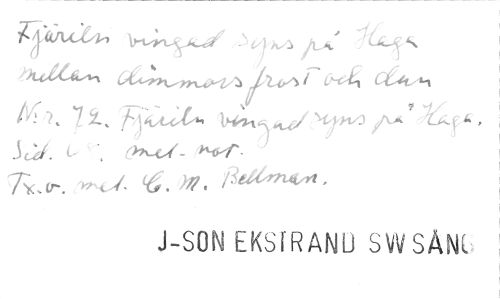 Fjäriln vingad syns på Haga
mellan dimmors frost och dun
N:r. 72. Fjäriln vingad syns på Haga.
Sid. mel. not.
Tx. o. mel. C. M. Bellman.
J-SON EKSTRAND SW SÅNG